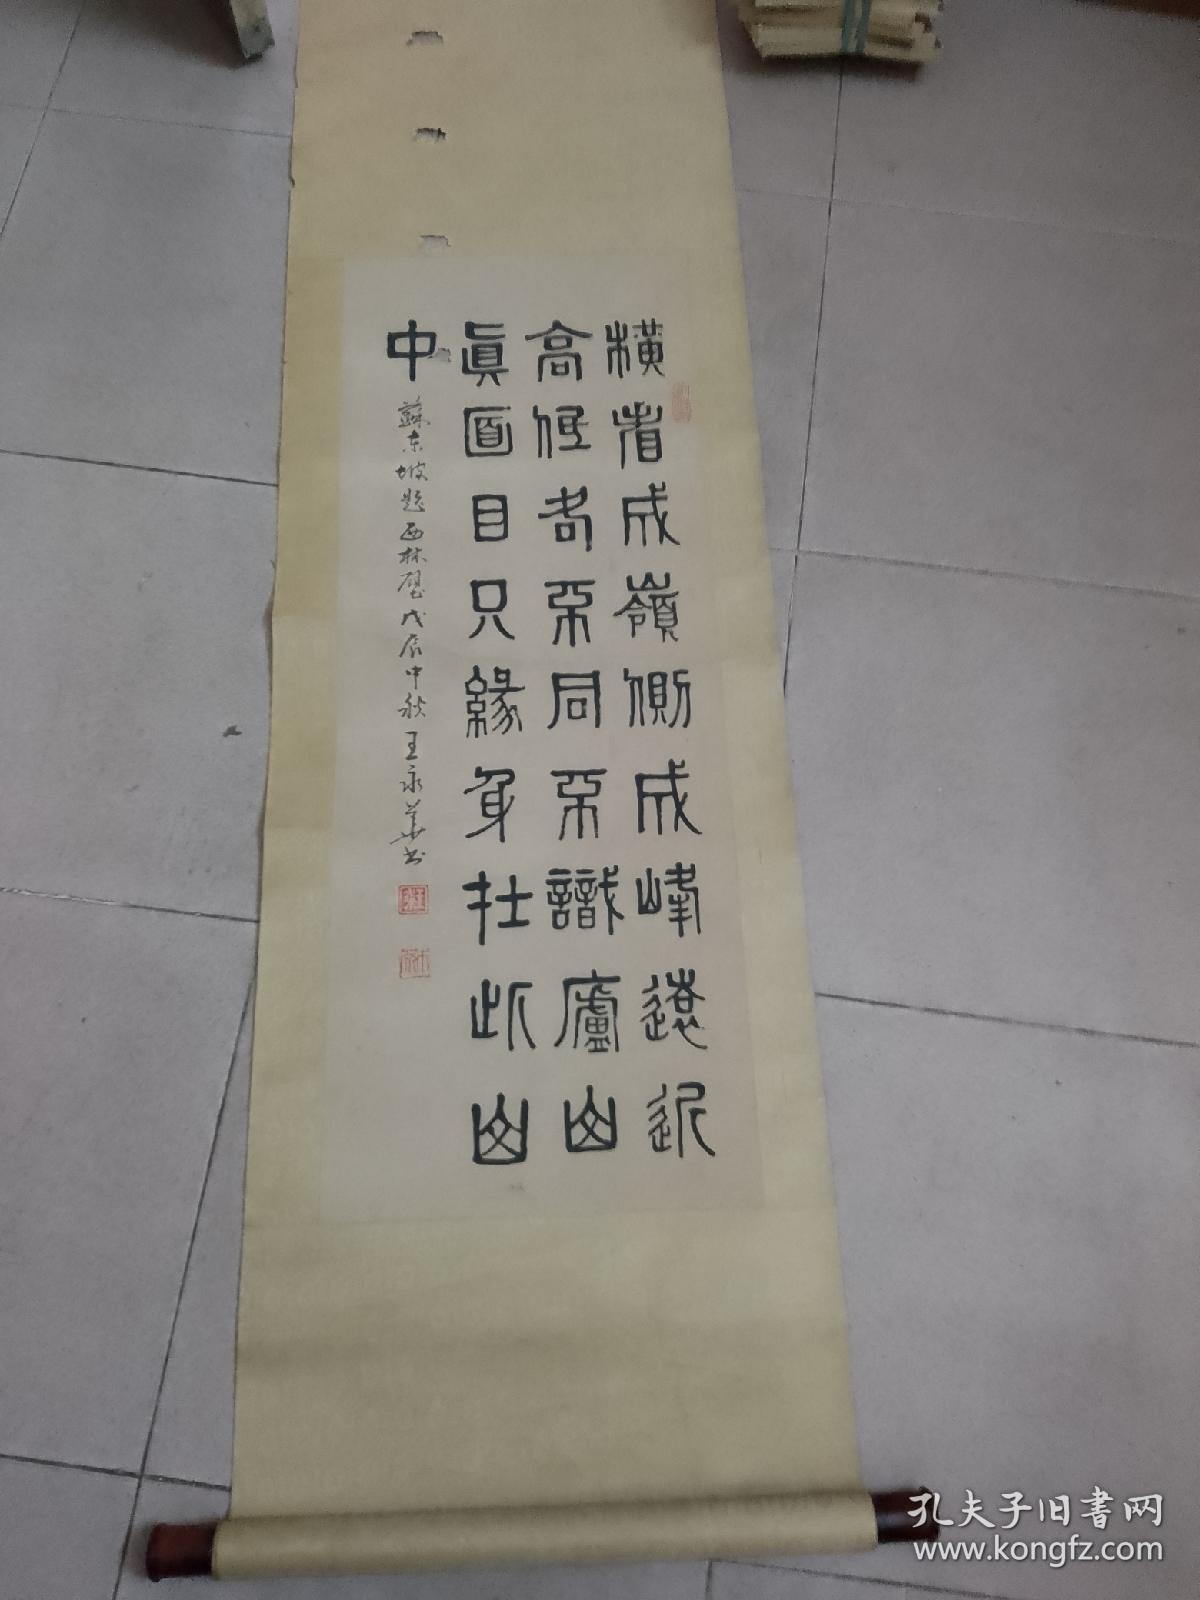 橫看成嶺側成峰遠近
高低各不同不識廬山
眞面目只緣身在此山
中
蘇东坡题西林壁戊辰中秋王永華书
孔夫子旧书网
www.kongfz.com